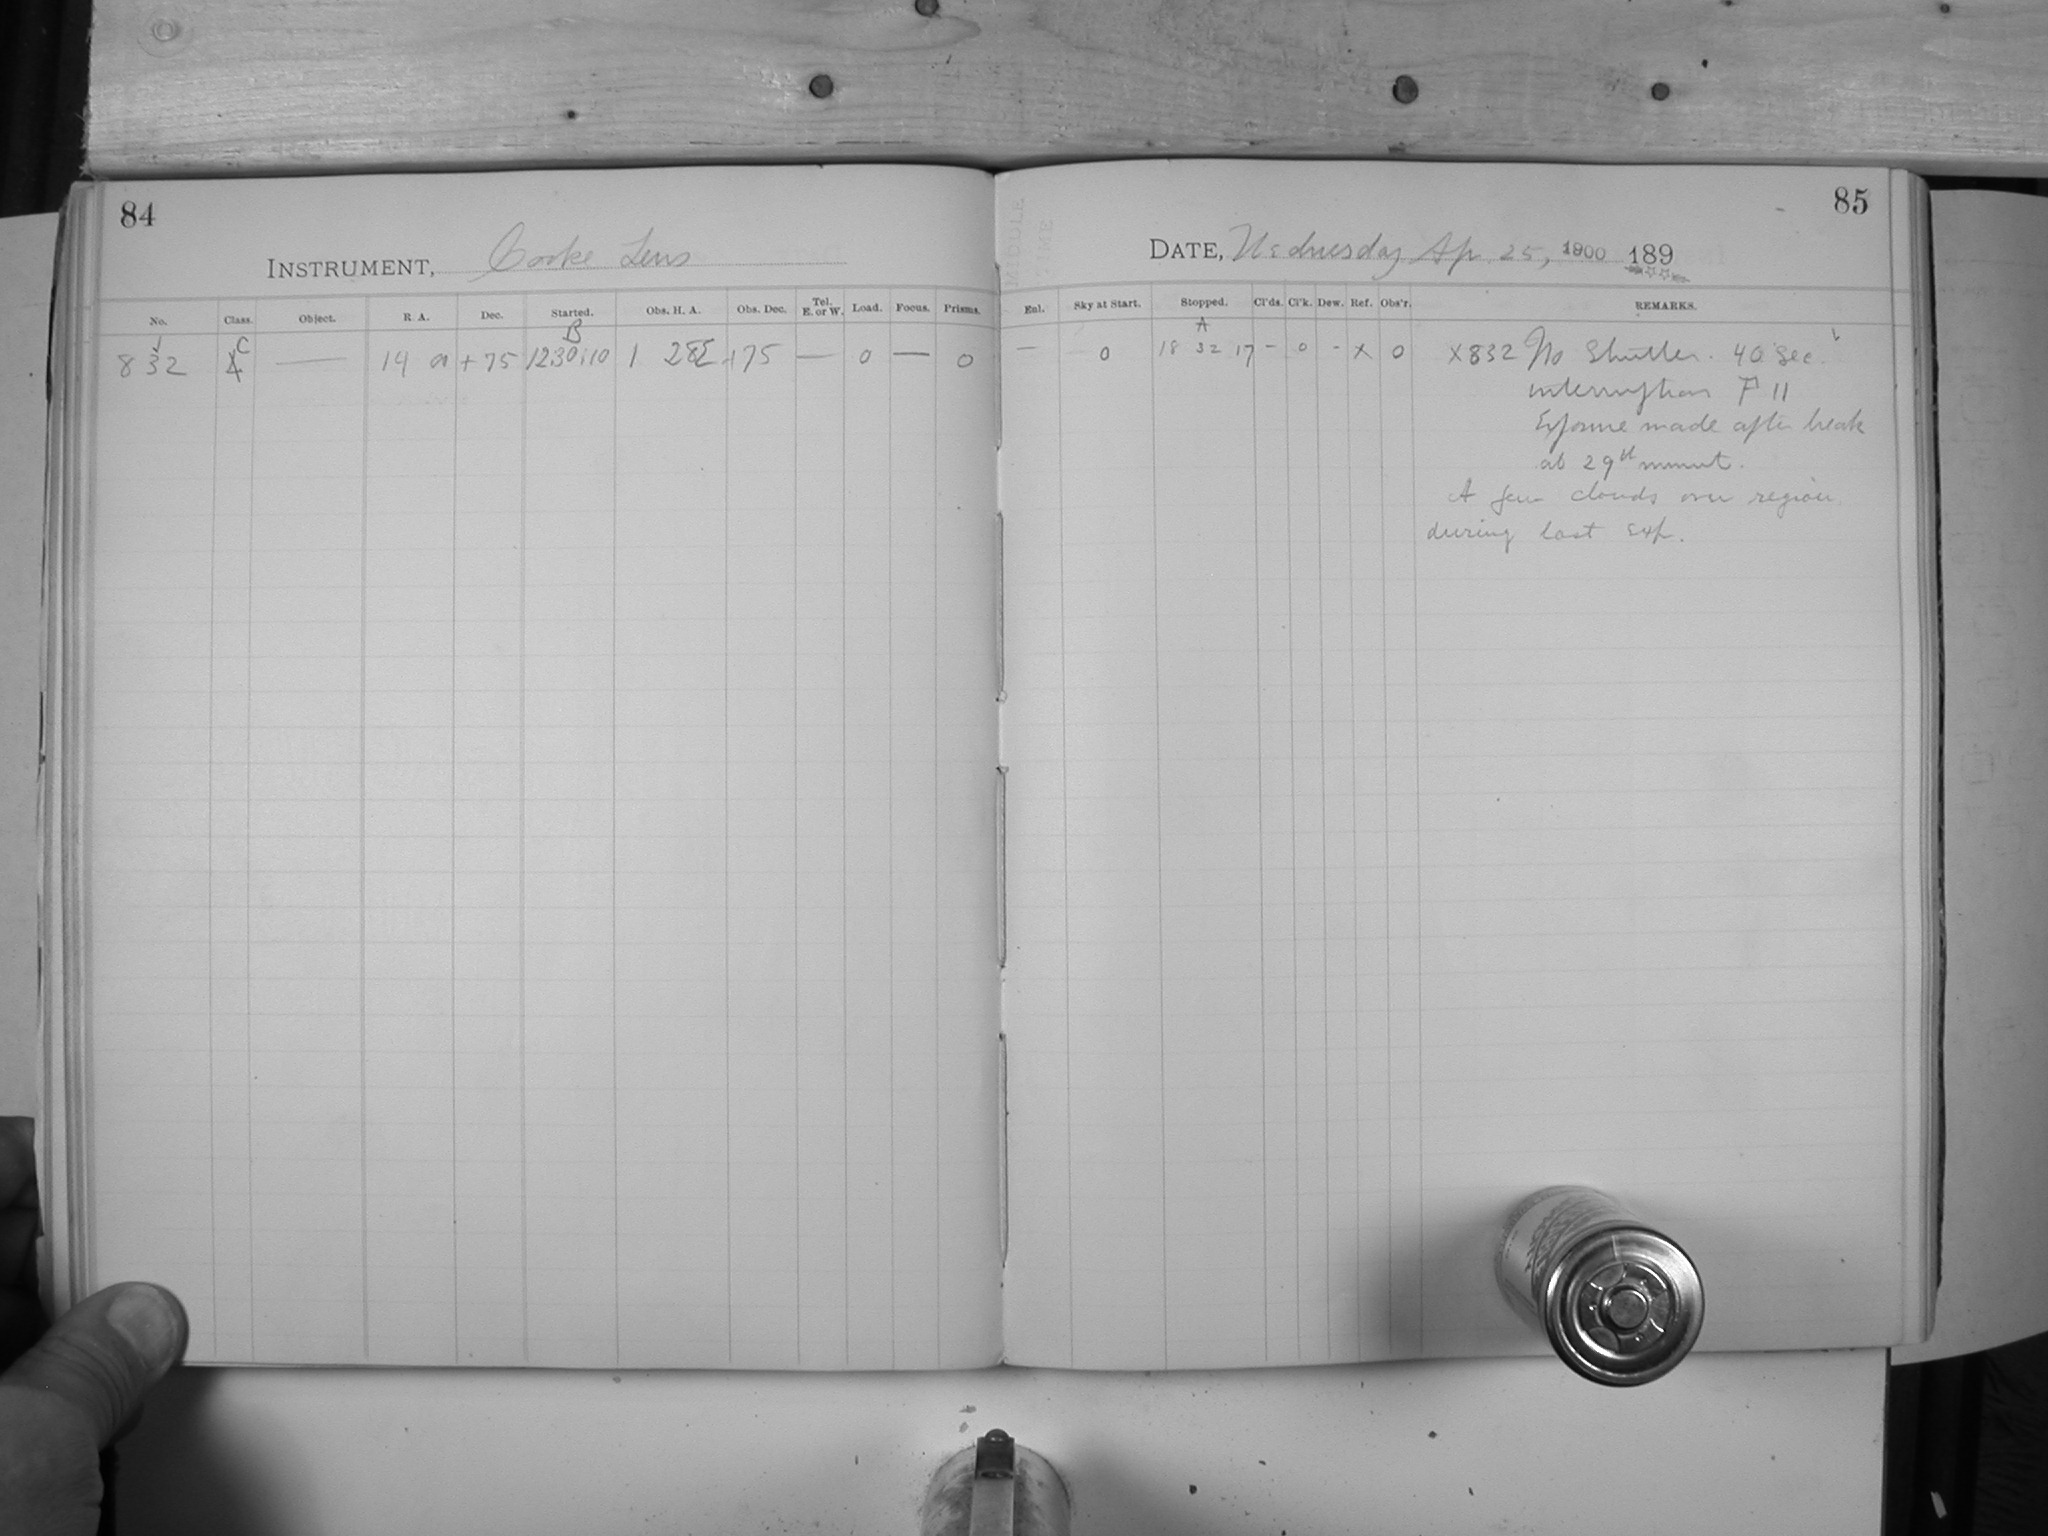 84
INSTRUMENT, Cooke Lens
No. Class. Object. R. A. Dec. Started. Obs. H. A. Obs. Dec. Tel. E. or W. Load. Focus. Prisms.
B
832 C — 14 0 +75 12 30 10 1 28 +75 — 0 — 0
85
DATE, Wednesday Ap. 25, 1900 189
Enl. Sky at Start. Stopped. Cl'ds. Cl'k. Dew. Ref. Obs'r. REMARKS.
A
— 0 18 32 17 - 0 - X 0 X832 No Shutter. 40 sec.
interruption F 11
Exposure made after break
at 29th minut.
A few clouds over region
during last exp.
MIDDLE
TIME